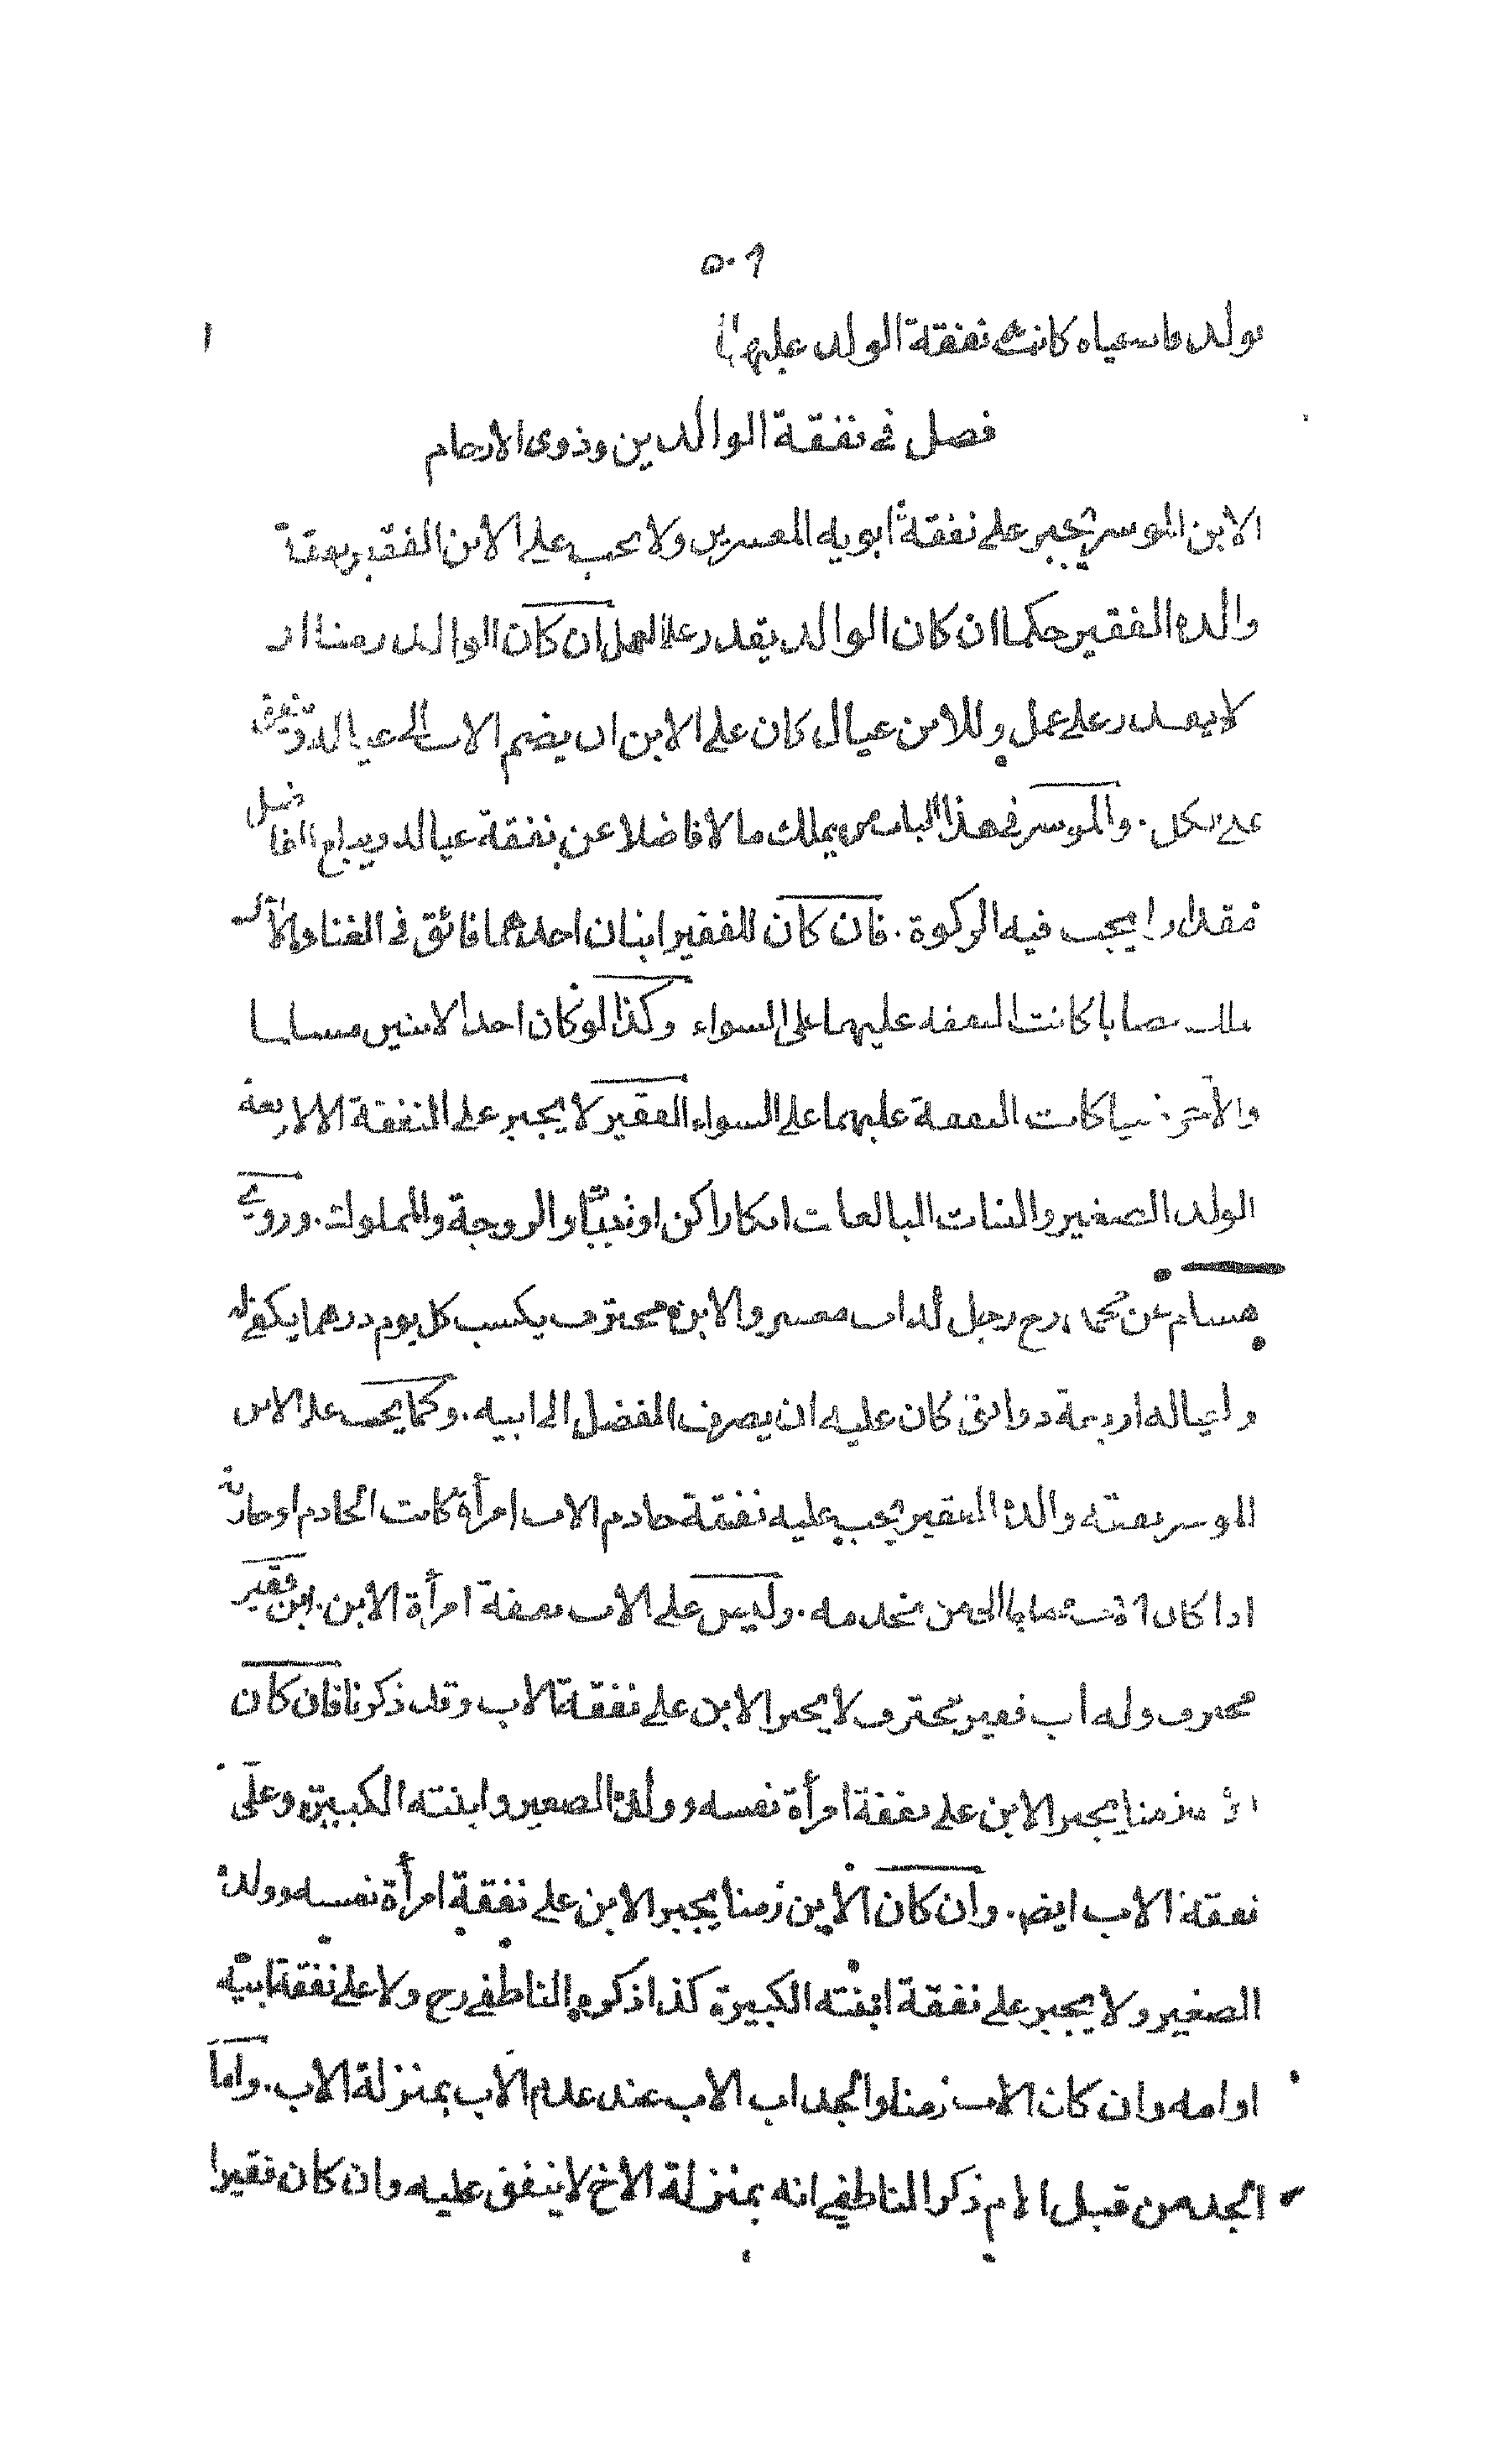 ٥٠٦
بولد فادعياه كانت نفقة الولد عليهما
فصل في نفقة الوالدين وذوى الارحام
الابن الموسر يجبر على نفقة ابويه المعسرين ولا يجب على الابن الفقير نفقة
والده الفقير حكما ان كان الوالد يقدر على العمل ان كان الوالد زمنا او
لا يقدر على عمل وللابن عيال كان على الابن ان يضم الاب الى عياله وينفق
على الكل. والموسر في هذا الباب من يملك مالا فاضلا عن نفقة عياله ويبلغ الفاضل
مقدارا يجب فيه الزكوة. فان كان للفقير ابنان احدهما فائق في الغنا والآخر
ملك نصابا كانت النفقة عليهما على السواء وكذا لو كان احد الابنين مسلما
والآخر ذميا كانت النفقة عليهما على السواء الفقير لا يجبر على النفقة الا لاربعة
الولد الصغير والبنات البالغات ابكارا كن او ثيبا والزوجة والمملوك. وروى
هشام عن محمد رح رجل له اب معسر والابن محترف يكسب كل يوم درهما يكفى له
ولعياله اربعة دوانق كان عليه ان يصرف الفضل الى ابيه. وكما يجب على الابن
الموسر نفقة والده الفقير يجب عليه نفقة خادم الاب امرأة كانت الخادم او جارية
اذا كان الاب محتاجا الى من يخدمه. وليس على الاب نفقة امرأة الابن. ابن فقير
محترف وله أب فقير محترف لا يجبر الابن على نفقة الاب وقد ذكرنا فان كان
الاب زمنا يجبر الابن على نفقة امرأة نفسه وولده الصغير وابنته الكبيرة وعلى
نفقة الاب ايض. وان كان الابن زمنا يجبر الابن على نفقة امرأة نفسه وولده
الصغير ولا يجبر على نفقة ابنته الكبيرة كذا ذكره الناطفي رح ولا على نفقة ابيه
او امه وان كان الاب زمنا والجد اب الاب عند عدم الاب بمنزلة الاب. واما
الجد من قبل الام ذكر الناطفي انه بمنزلة الاخ لا ينفق عليه وان كان فقيرا